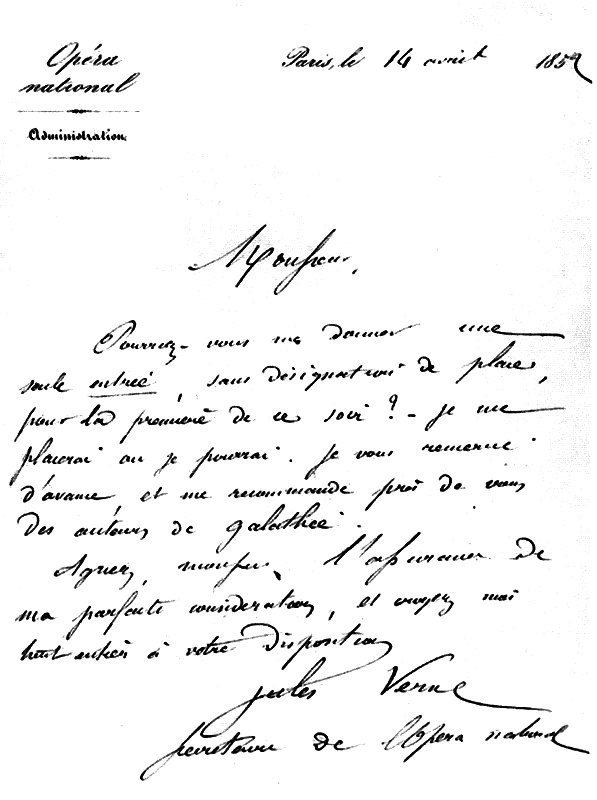 Opéra
national
Administration.
Paris, le 14 avril 1852
Monsieur,
Pourriez-vous me donner une
seule entrée, sans désignation de place,
pour la première de ce soir ? - je me
placerai où je pourrai. Je vous remercie
d'avance et me recommande près de vous
des auteurs de galathée.
Agréez, monsieur, l'assurance de
ma parfaite considération, et croyez moi
tout entier à votre disposition
Jules Verne
Secretaire de l'Opera national